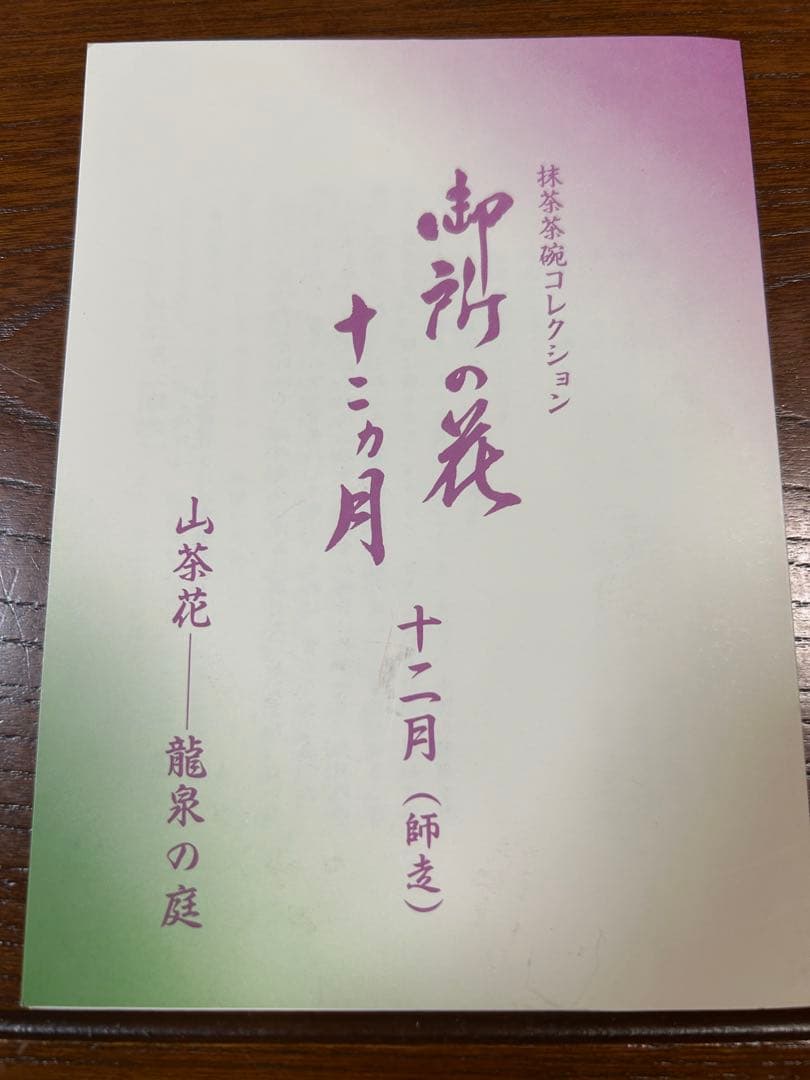 抹茶茶碗コレクション
御所の花
十二ヵ月
十二月（師走）
山茶花――龍泉の庭